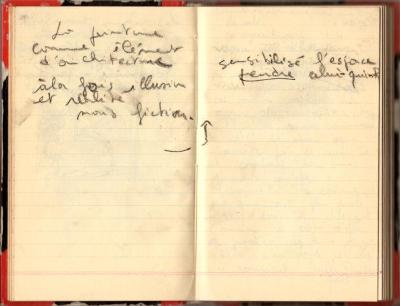 La peinture
comme élément
d'architecture
à la fois illusion
et réalité
nous fiction.
sensibilisé l'espace
rendre